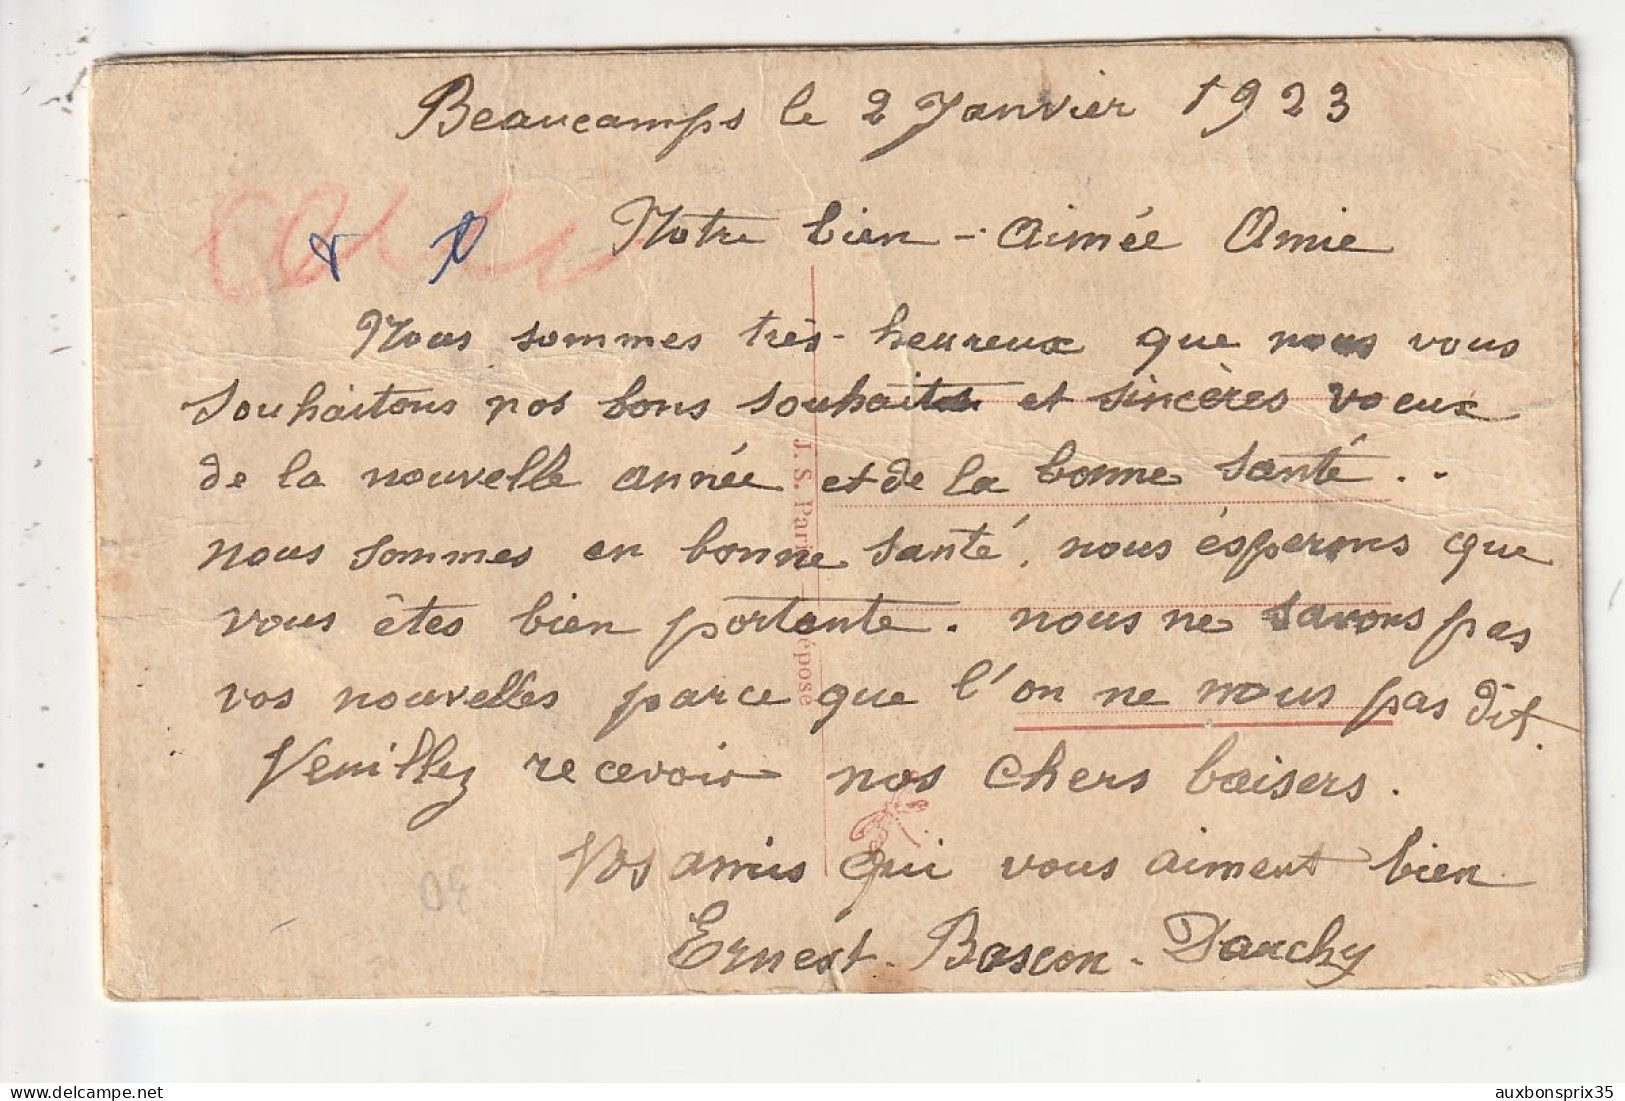 Beaucamps le 2 Janvier 1923
Notre bien-Aimée Amie
Nous sommes très-heureux que nous vous
souhaitons nos bons souhaits et sincères voeux
de la nouvelle année et de la bonne santé..
nous sommes en bonne santé, nous ésperons que
vous êtes bien portante. nous ne savons pas
vos nouvelles parce que l'on ne nous pas dit.
Veuillez recevoir nos chers baisers.
Vos amis qui vous aiment bien
Ernest-Bascon-Dauchy
J. S. Paris
éposé
auxbonsprix35